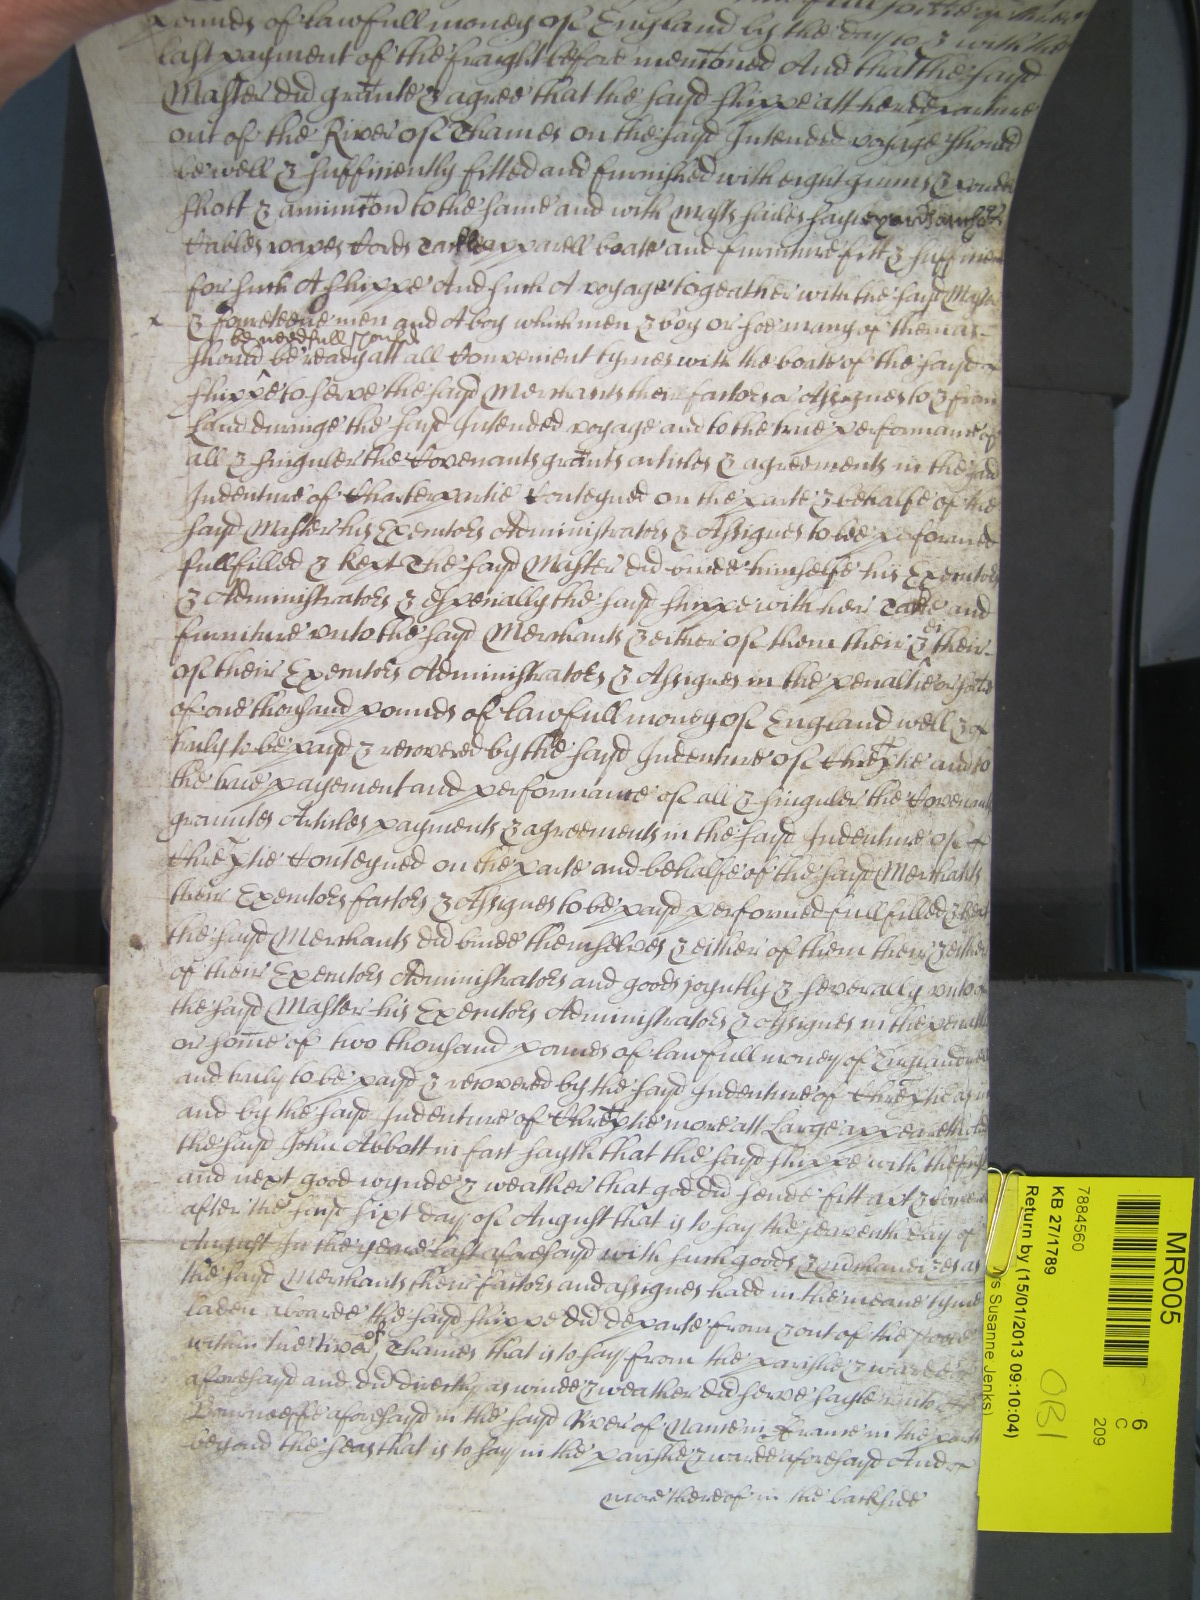 pounds of lawfull money of England by the day to & with the
last payment of the fraight before mentioned And that the sayd
Master did graunte & agree that the sayd shippe att her departure
out of the River of Thames on the sayd Intended voyage should
be well & sufficiently fitted and furnished with eight gunns & powder
shott & amunicon to the same and with Masts sailes sayle yards anchors
Cables ropes Cords Tackle apparell boate and furniture fitt & sufficient
for such A shippe And such A voyage togeather with the sayd Master
x & fowerteene men and A boy which men & boy or soe many of them as
be needfull should
should be ready att all Convenient tymes with the boate of the sayd
shippe to serve the sayd Merchants their factors or Assignes to & from
Land duringe the sayd Intended voyage and to the true performance of
all & singuler the Covenants grants articles & agreements in the said
Indenture of Charterpartie Conteyned on the parte & behalfe of the
sayd Master his Executors Administrators & Assignes to bee performed
fullfilled & kept The sayd Master did binde himselfe his Executors
& Administrators & especially the sayd shippe with her Tackle and
furniture unto the sayd Merchants & either of them their & their
ei
of their Executors Administrators & Assignes in the penaltie or some
of one thousand pounds of lawfull money of England well &
truly to be payd & recovered by the sayd Indenture of Chreptie and to
the true payement and performance of all & singuler the Covenants
grauntes Articles payments & agreements in the sayd Indenture of
Chreptie Conteyned on the parte and behalfe of the sayd Merchants
their Executors factors & Assignes to be payd performed fullfilled & kept
the sayd Merchants did binde themselves & either of them their & either
of their Executors Administrators and goods joyntly & severally unto
the sayd Master his Executors Administrators & Assignes in the penaltie
or some of two thousand pounds of lawfull money of England well
and truly to be payd & recovered by the sayd Indenture of Chreptie as in
and by the sayd Indenture of Chreptie more att Large appeareth And
the sayd John Abbott in fact sayth that the sayd shippe with the first
and next good wynde & weather that god did sende fitt
after the sayd sixt day of August that is to say the seaventh day of
August In the yeare last aforesayd with such goods & merchandizes as
the sayd Merchants their factors and assignes hadd in the meane tyme
laden aboarde the sayd shippe did departe from & out of the
of
within the River Thames that is to say from the parishe & warde
aforesayd and did directly as winde & weather did serve sayle unto
aforesayd in the sayd River of Nante in France in the parts
beyond the seas that is to say in the parishe & warde aforesayd And
more thereof in the backside
MR005
6
C
209
7884560
KB 27/1789
Return by (15/01/2013 09:10:04)
Susanne Jenks)
OBI